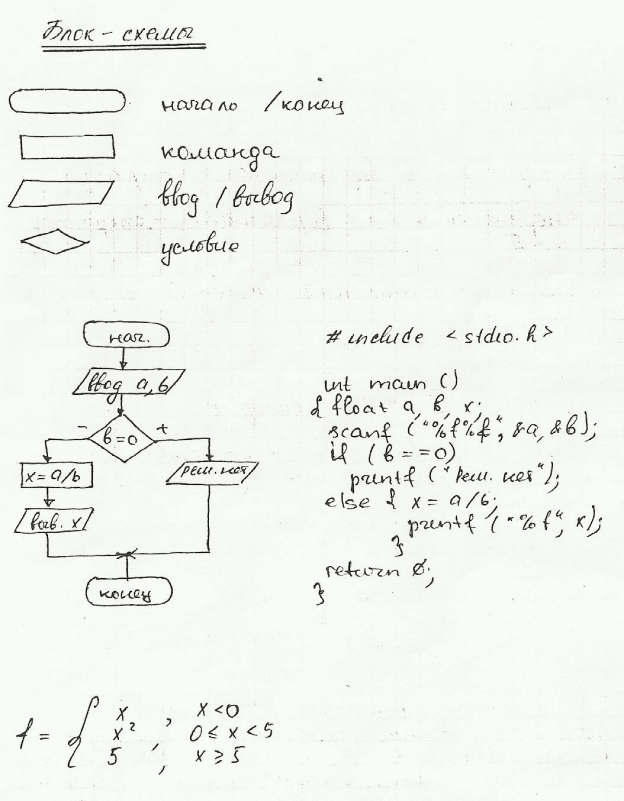 Блок - схемы
начало / конец
команда
ввод / вывод
условие
нач.
ввод a, b
- b=0 +
x = a/b
реш. нет
выв. x
конец
# include < stdio.h >
int main ()
{ float a, b, x;
scanf ("%f%f", &a, &b);
if (b == 0)
printf ("Реш. нет");
else { x = a/b;
printf ("%f", x);
}
return 0;
}
f = { x , x < 0
x² , 0 ≤ x < 5
5 , x ≥ 5